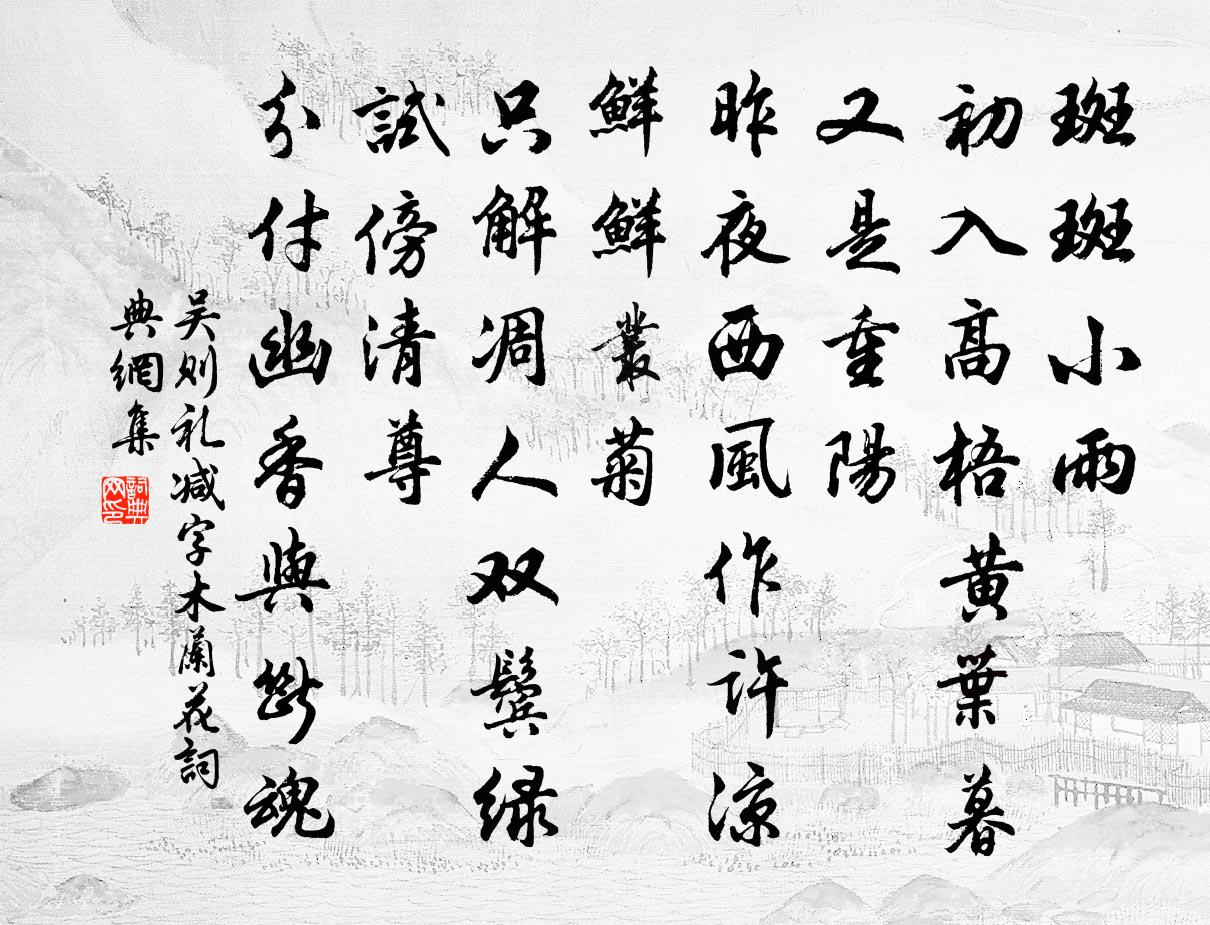 斑斑小雨
初入高梧黄葉暮
又是重陽
昨夜西風作許涼
鮮鮮叢菊
只解凋人双鬓緑
試傍清尊
分付幽香與断魂
吴则礼减字木蘭花詞
典網集
詞典网印